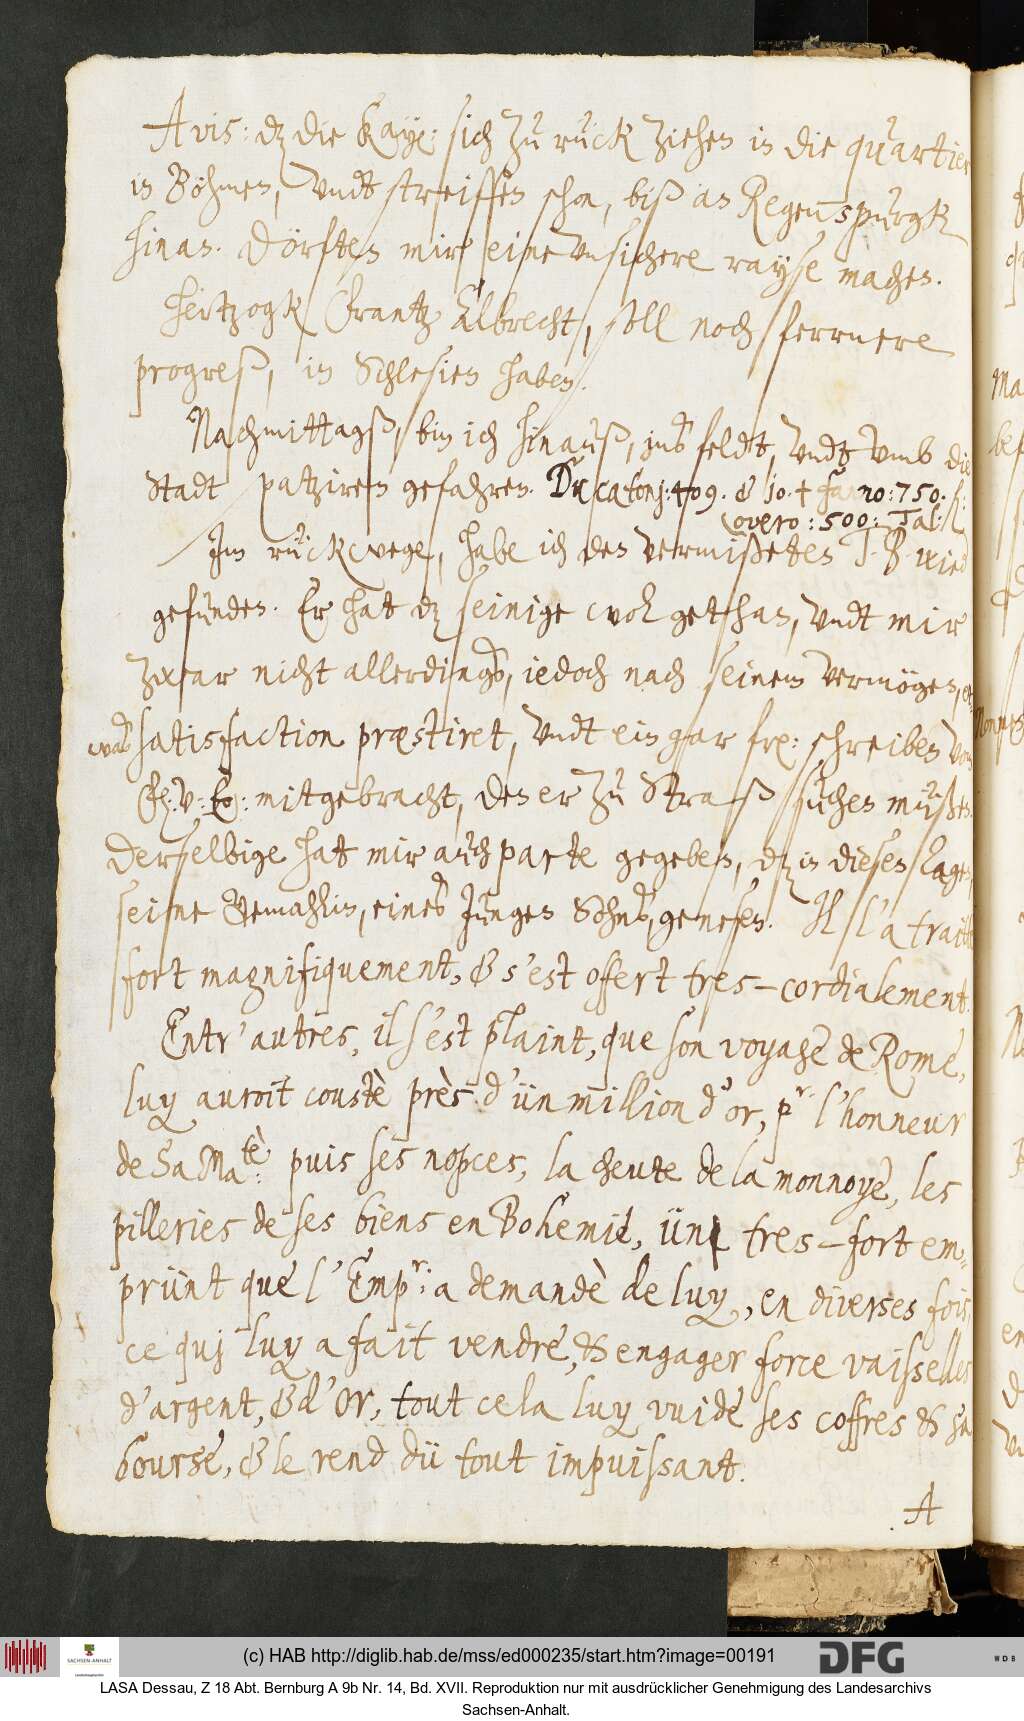 Avis: dz die Kay: sich zu rück ziehen in die quartier
in Böhmen, vndt streiffen schon, biß an Regenspurgk
hinan. Dörften mir eine vnsichere rayse machen.
Hertzogk Frantz Albrecht, soll noch fernere
progreß, in Schlesien haben.
Nachmittagß, bin ich hinauß, ins feldt, vndt vmb die
Stadt spatziren gefahren. Ducatonj: 409. & 10. + fanno: 750. f:
overo: 500: Tal:
Im rückwege, habe ich den vermißeten T. B. wied
gefunden. Er hat dz seinige wol gethan, vndt mir
zwar nicht allerdings, iedoch nach seinem vermögen, et
was satisfaction præstiret, vndt ein gar fre: schreiben vom
F: v: E: mitgebracht, den er zu Straß suchen müßen.
Derselbige hat mir auch parte gegeben, dz in diesen Tagen,
seine Gemahlin, eines Jungen Sohns, genesen. Il l'a traittè
fort magnifiquement, & s'est offert tres-cordialement.
Entr'autres, il s'est plaint, que son voyage de Rome,
luy auroit coustè près d'ün million d'or, pr l'honneur
de Sa Matè: puis ses nopces, la cheute de la monnoye, les
pilleries de ses biens en Bohemie, ün tres-fort em-
prünt que l'Empr: a demandè de luy, en diverses fois,
ce quj luy a fait vendre, & engager force vaisselles
d'argent, & d'Or, tout cela luy vuide ses coffres & sa
bourse, & le rend dü tout impuissant.
A
(c) HAB http://diglib.hab.de/mss/ed000235/start.htm?image=00191
SACHSEN-ANHALT
DFG
WDB
LASA Dessau, Z 18 Abt. Bernburg A 9b Nr. 14, Bd. XVII. Reproduktion nur mit ausdrücklicher Genehmigung des Landesarchivs
Sachsen-Anhalt.